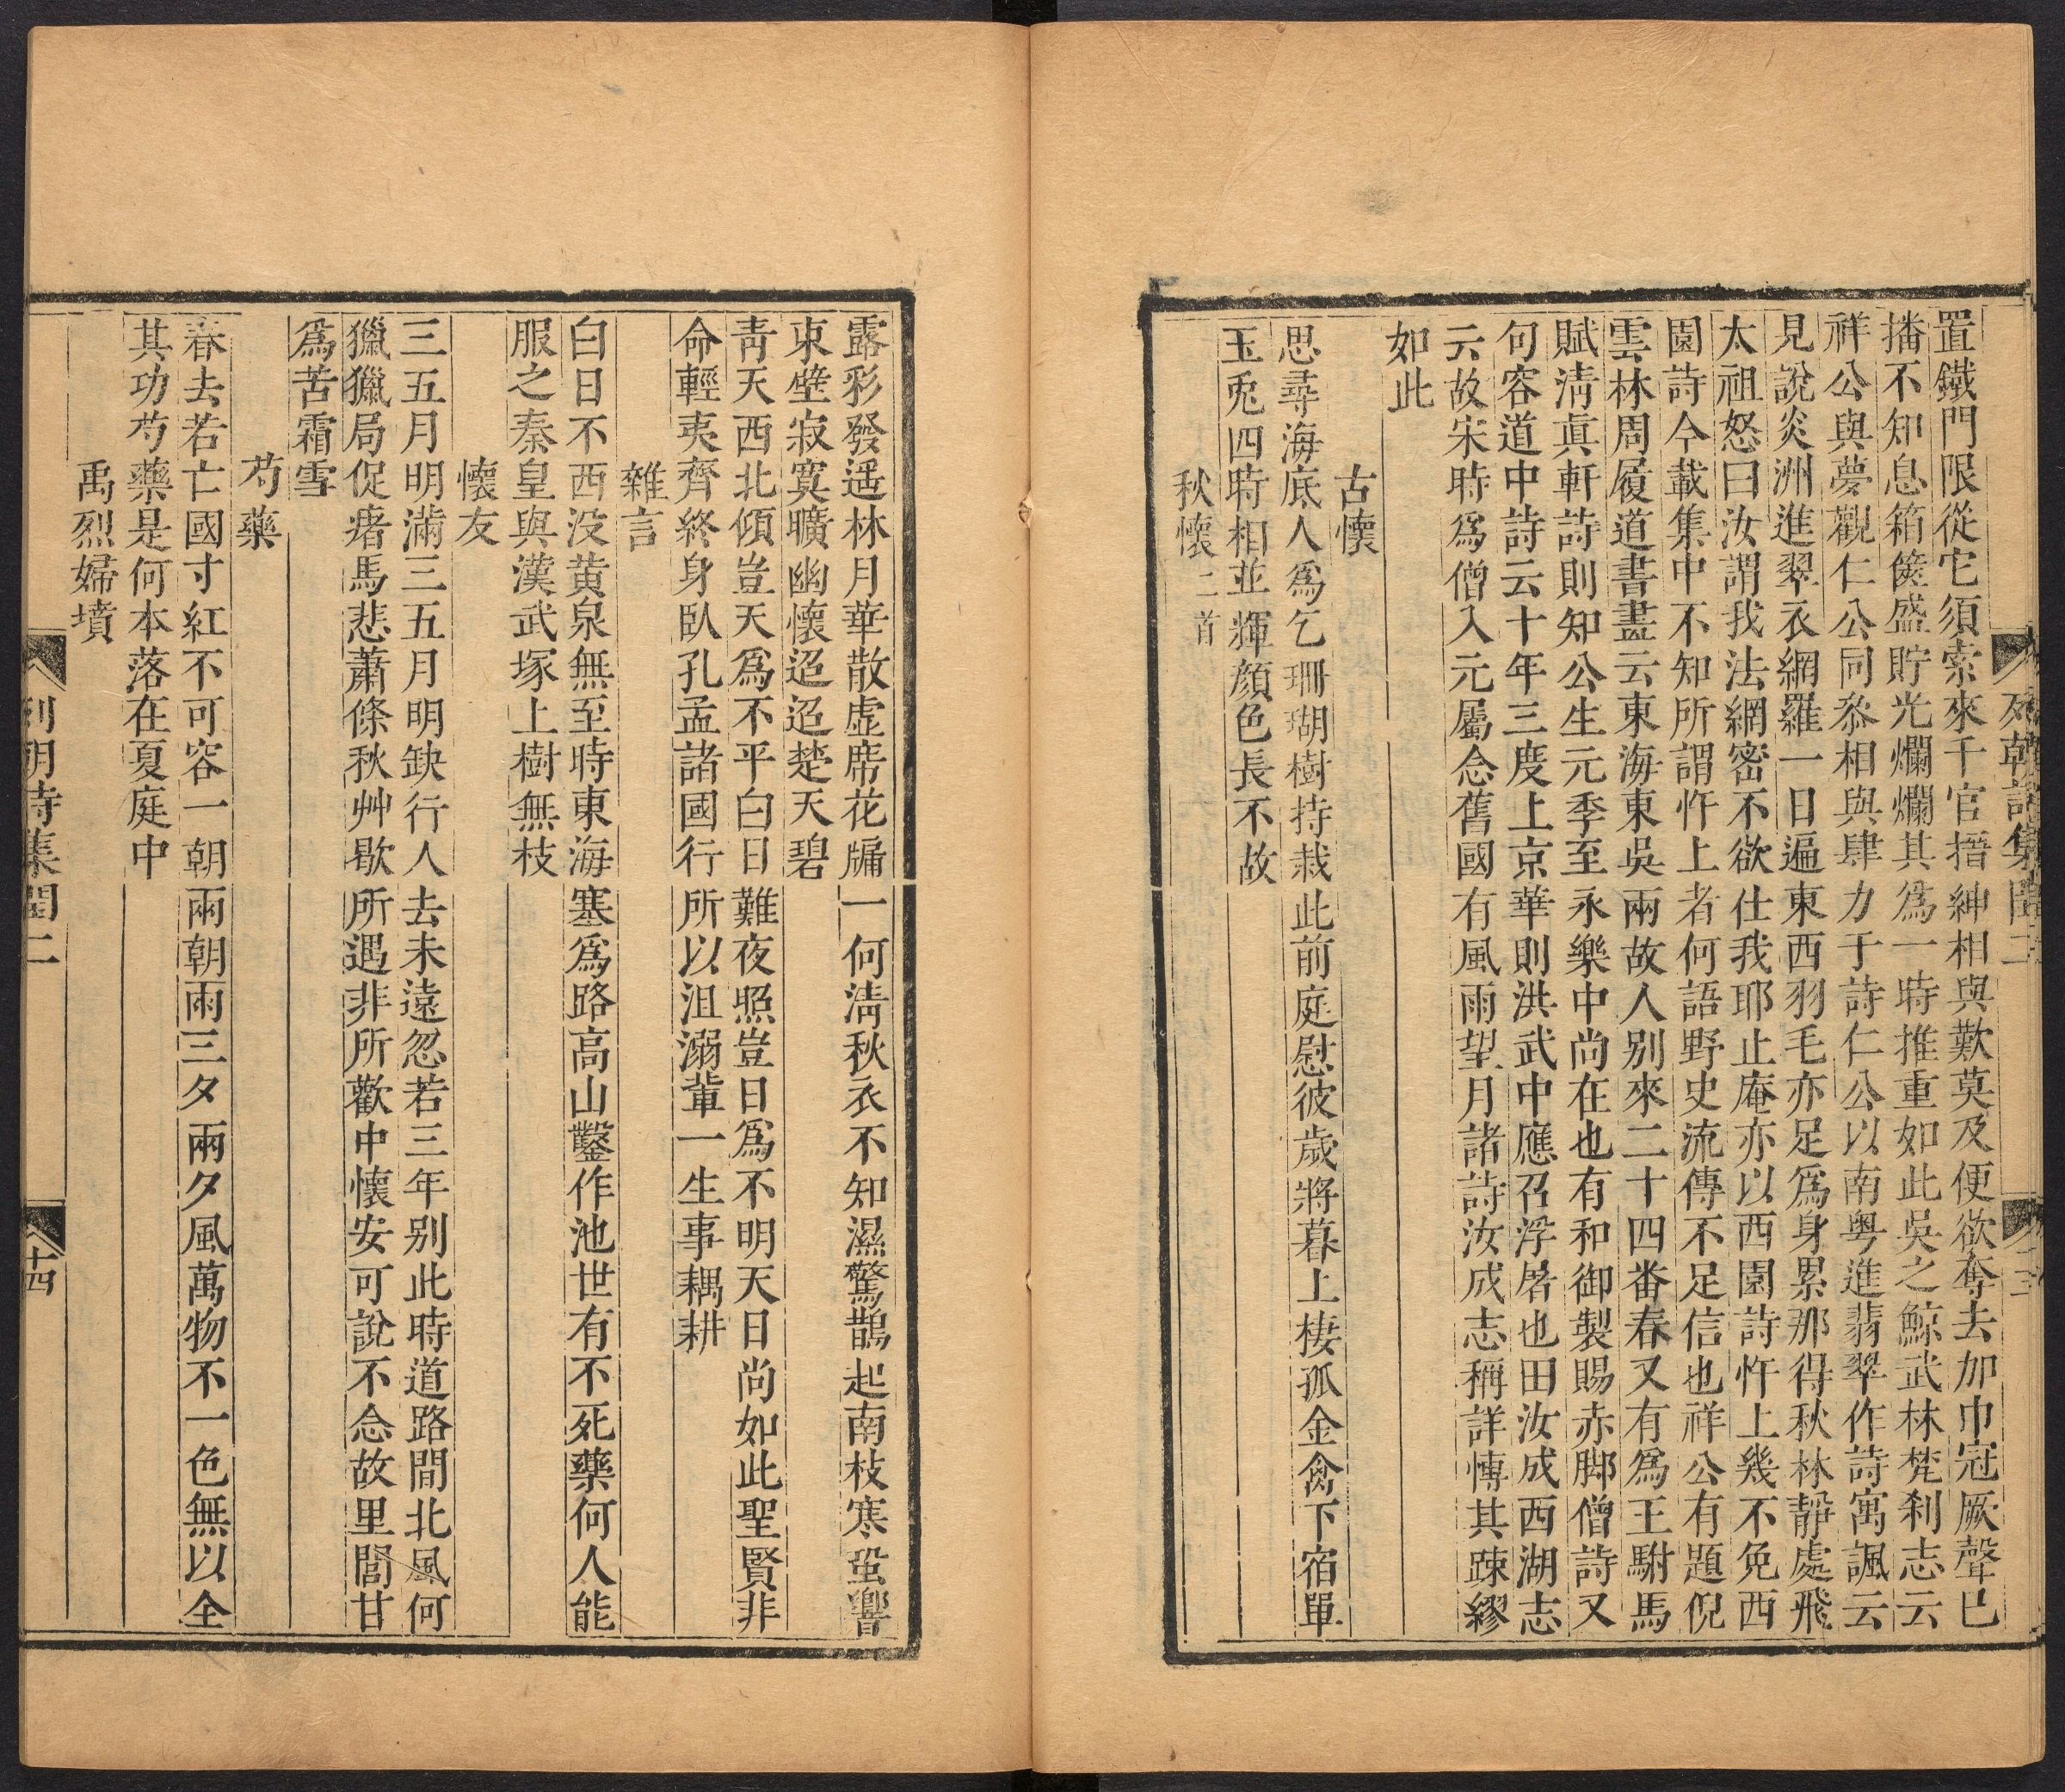 列朝詩集閏二
十三
置鐵門限從它須索來千官搢紳相與歎莫及便欲奪去加巾冠厥聲已
播不知息箱篋盛貯光爛爛其爲一時推重如此吳之鯨武林梵刹志云
祥公與夢觀仁公同叅相與肆力于詩仁公以南粤進翡翠作詩寓諷云
見說炎洲進翠衣網羅一日遍東西羽毛亦足爲身累那得秋林靜處飛
太祖怒曰汝謂我法網密不欲仕我耶止庵亦以西園詩忤上幾不免西
園詩今載集中不知所謂忤上者何語野史流傳不足信也祥公有題倪
雲林周履道書畫云東海東吳兩故人别來二十四番春又有爲王駙馬
賦淸眞軒詩則知公生元季至永樂中尚在也有和御製賜赤脚僧詩又
句容道中詩云十年三度上京華則洪武中應召浮屠也田汝成西湖志
云故宋時爲僧入元屬念舊國有風雨望月諸詩汝成志稱詳愽其踈繆
如此
古懷
思尋海底人爲乞珊瑚樹持栽此前庭慰彼歲將暮上棲孤金禽下宿單
玉兎四時相並輝顔色長不故
秋懷二首
露彩發遥林月華散虛席花牖一何淸秋衣不知濕驚鵲起南枝寒蛩響
東壁寂寞曠幽懷迢迢楚天碧
靑天西北傾豈天爲不平白日難夜照豈日爲不明天日尚如此聖賢非
命輕夷齊終身臥孔孟諸國行所以沮溺輩一生事耦耕
雜言
白日不西没黄泉無至時東海塞爲路高山鑿作池世有不死藥何人能
服之秦皇與漢武塚上樹無枝
懷友
三五月明滿三五月明缺行人去未遠忽若三年别此時道路間北風何
獵獵局促瘏馬悲蕭條秋艸歇所遇非所歡中懷安可說不念故里閭甘
爲苦霜雪
芍藥
春去若亡國寸紅不可容一朝兩朝雨三夕兩夕風萬物不一色無以全
其功芍藥是何本落在夏庭中
禹烈婦墳
列朝詩集閏二
十四